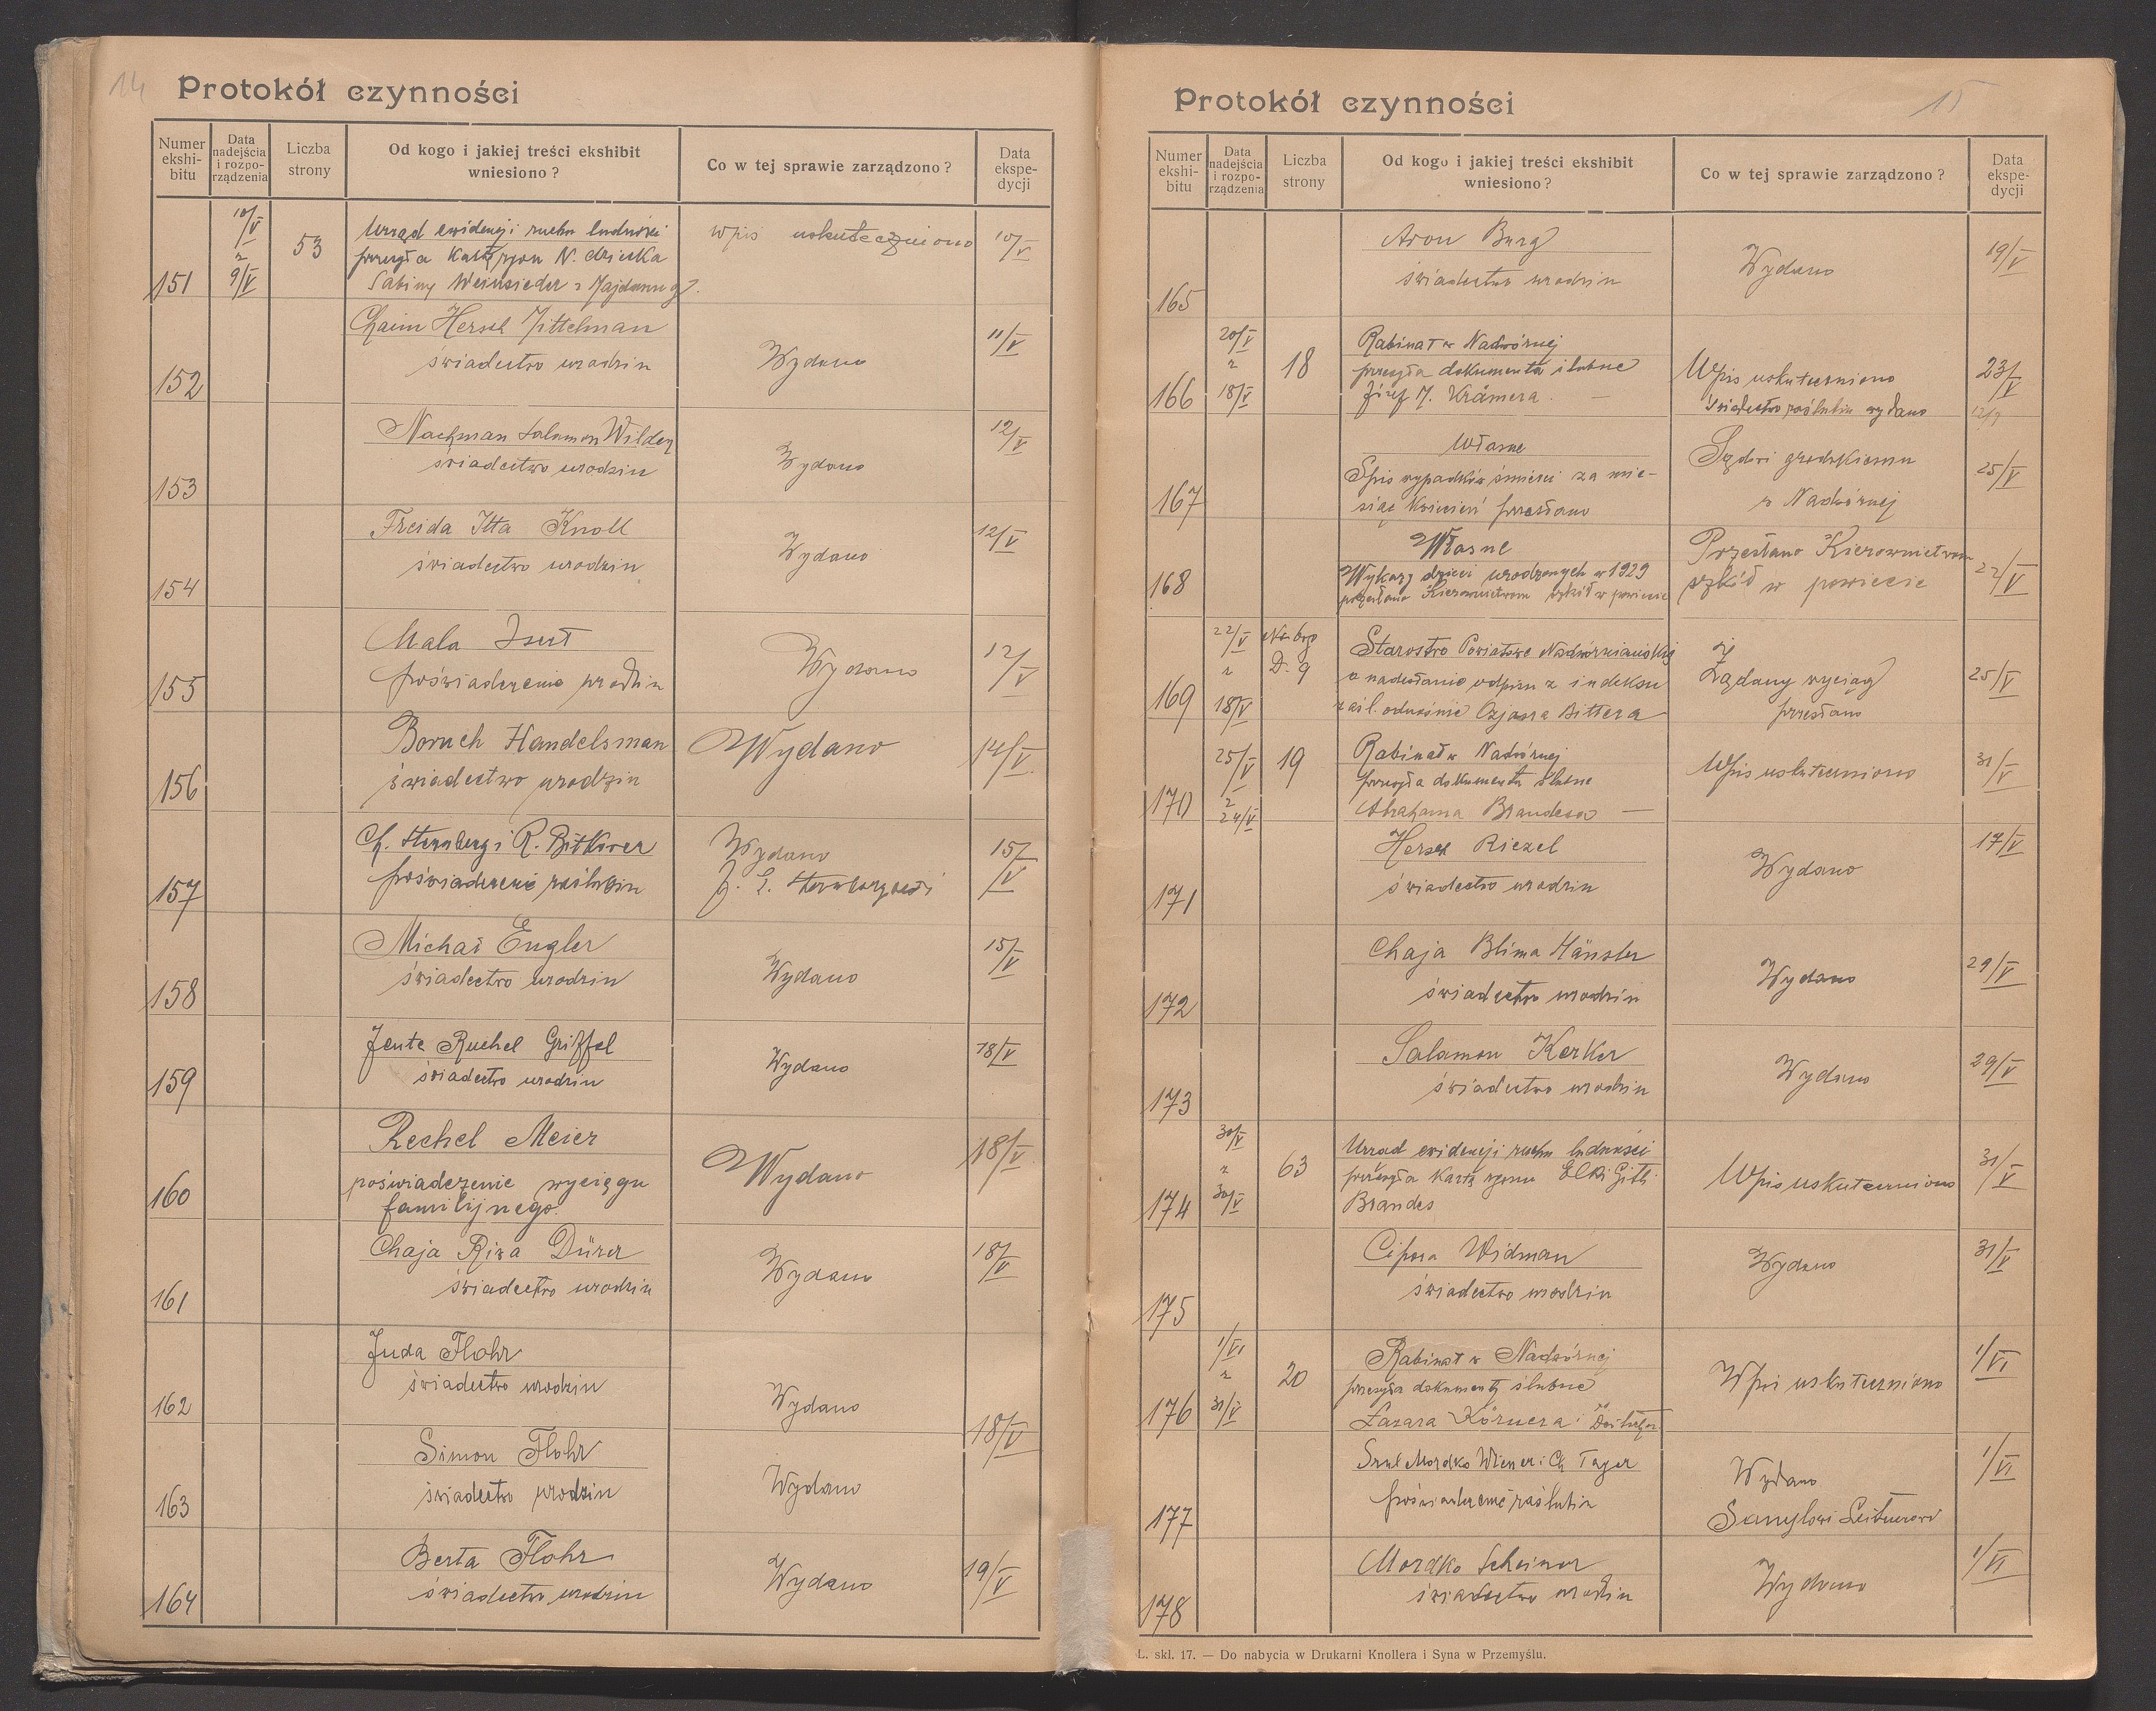 14
Protokół czynności
Numer ekshi-bitu
Data nadejścia i rozpo-rządzenia
Liczba strony
Od kogo i jakiej treści ekshibit wniesiono?
Co w tej sprawie zarządzono?
Data ekspe-dycji
151 10/V z 9/V 53 Urząd ewidencji ruchu ludności wpis uskuteczniono 10/V
przesyła kartę zgonu N. dziecka
Sabiny Weinsieder z
152 Chaim Hersch Mittelman Wydano 11/V
świadectwo urodzin
153 Nachman Salamon Wydano 12/V
świadectwo urodzin
154 Freida Itta Knoll Wydano 12/V
świadectwo urodzin
155 Mala Wydano 12/V
poświadczenie urodzin
156 Boruch Handelsman Wydano 14/V
świadectwo urodzin
157 Ch. Sternberg i R. Bitkower Wydano 15/V
poświadczenie zaślubin
158 Michał Engler Wydano 15/V
świadectwo urodzin
159 Jente Ruchel Griffel Wydano 18/V
świadectwo urodzin
160 Rechel Meier Wydano 18/V
poświadczenie wyciągu
familijnego.
161 Chaja Riwa Dürer Wydano 18/V
świadectwo urodzin
162 Juda Flohr Wydano
świadectwo urodzin
18/V
163 Simon Flohr Wydano
świadectwo urodzin
164 Berta Flohr Wydano 19/V
świadectwo urodzin
15
Protokół czynności
Numer ekshi-bitu
Data nadejścia i rozpo-rządzenia
Liczba strony
Od kogo i jakiej treści ekshibit wniesiono?
Co w tej sprawie zarządzono?
Data ekspe-dycji
165 Aron Burg Wydano 19/V
świadectwo urodzin
166 20/V z 18/V 18 Rabinat w Nadwórnej Wpis uskuteczniono 23/V
przesyła dokumenta ślubne
Józef M. Krämera. — świadectwo zaślubin wydano
167 Własne Sądowi grodzkiemu 25/V
Spis wypadków śmierci za mie-
siąc kwiecień przesłano w Nadwórnej
168 Własne Przesłano Kierownictwom 22/V
Wykazy dzieci urodzonych w 1929 szkół w powiecie
przesłano Kierownictwom szkół w powiecie
169 22/V z 18/V Starostwo Powiatowe Żądany wyciąg 25/V
o nadesłanie odpisu z indeksu przesłano
odnośnie Ozjasza Bittera
170 25/V z 24/V 19 Rabinat w Nadwórnej Wpis uskuteczniono 31/V
przesyła dokumenta ślubne
Abrahama Brandesa —
171 Hersch Riezel Wydano 17/V
świadectwo urodzin
172 Chaja Blima Hänsler Wydano 29/V
świadectwo urodzin
173 Salamon Kerker Wydano 29/V
świadectwo urodzin
174 30/V z 30/V 63 Urząd ewidencji ruchu ludności Wpis uskuteczniono 31/V
przesyła kartę zgonu Elki Gitli
Brandes
175 Cipora Widman Wydano 31/V
świadectwo urodzin
176 1/VI z 31/V 20 Rabinat w Nadwórnej Wpis uskuteczniono 1/VI
przesyła dokumenty ślubne
Łazara Körnera i
177 Srul Mordko Wiener i Ch Tager Wydano 1/VI
poświadczenie zaślubin Leitnerowi
178 Mordko Scheiner Wydano 1/VI
świadectwo urodzin
Ł. skl. 17. — Do nabycia w Drukarni Knollera i Syna w Przemyślu.